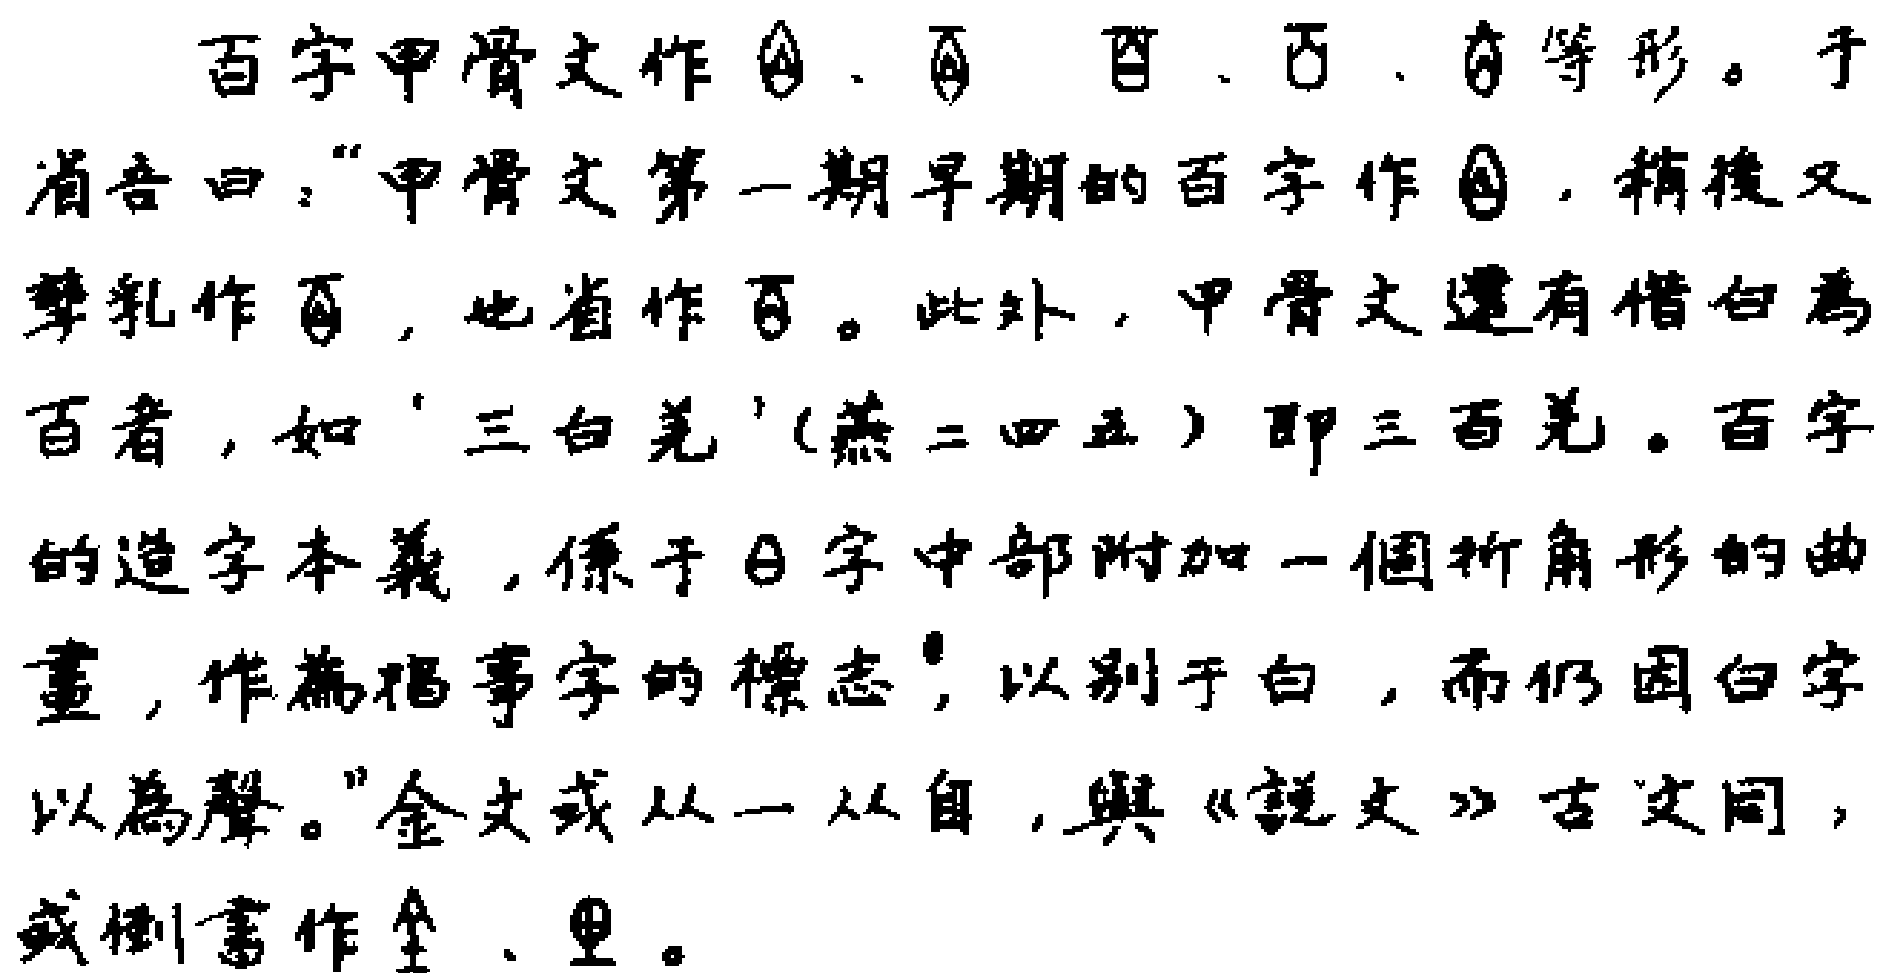 百字甲骨文作、等形。于
省吾曰："甲骨文第一期早期的百字作，稍後又
孳乳作，也省作。此外，甲骨文還有借白為
百者，如'三白羌'（燕二四五）即三百羌。百字
的造字本義，係于字中部附加一個折角形的曲
畫，作為指事字的標志，以別于白，而仍因白字
以為聲。"金文或从一从自，與《説文》古文同，
或倒書作、。